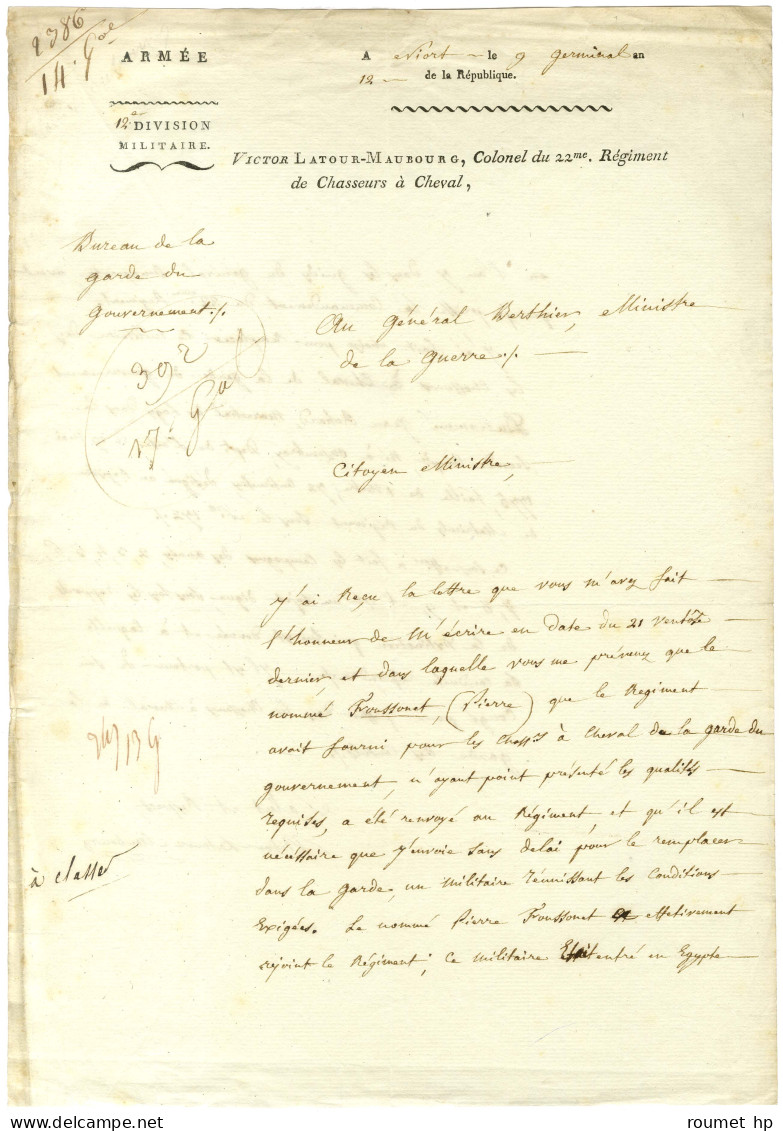 2386
14. Gal
ARMÉE
A Niort le 9 Germinal an
12 de la République.
12e DIVISION
MILITAIRE.
VICTOR LATOUR-MAUBOURG, Colonel du 22me. Régiment
de Chasseurs à Cheval,
Bureau de la
garde du
gouvernement ./.
392
17.
Au général Berthier, Ministre
de la guerre ./.
Citoyen Ministre,
J'ai Reçu la lettre que vous m'avez fait
l'honneur de M'écrire en date du 21 ventôse
dernier, et dans laquelle vous me prévenez que le
nommé Foussonet, (Pierre) que le Regiment
avait fourni pour les Chassrs à Cheval de la garde du
gouvernement, n'ayant point présenté les qualités
requises, a été renvoyé au Régiment, et qu'il est
nécéssaire que j'envoie sans delai pour le remplacer
dans la garde, un militaire réunissant les Conditions
Exigées. Le nommé Pierre Foussonet a effectivement
rejoint le Régiment; ce militaire Etait entré en Egypte
à classer
roumet hp
www.delcampe.net